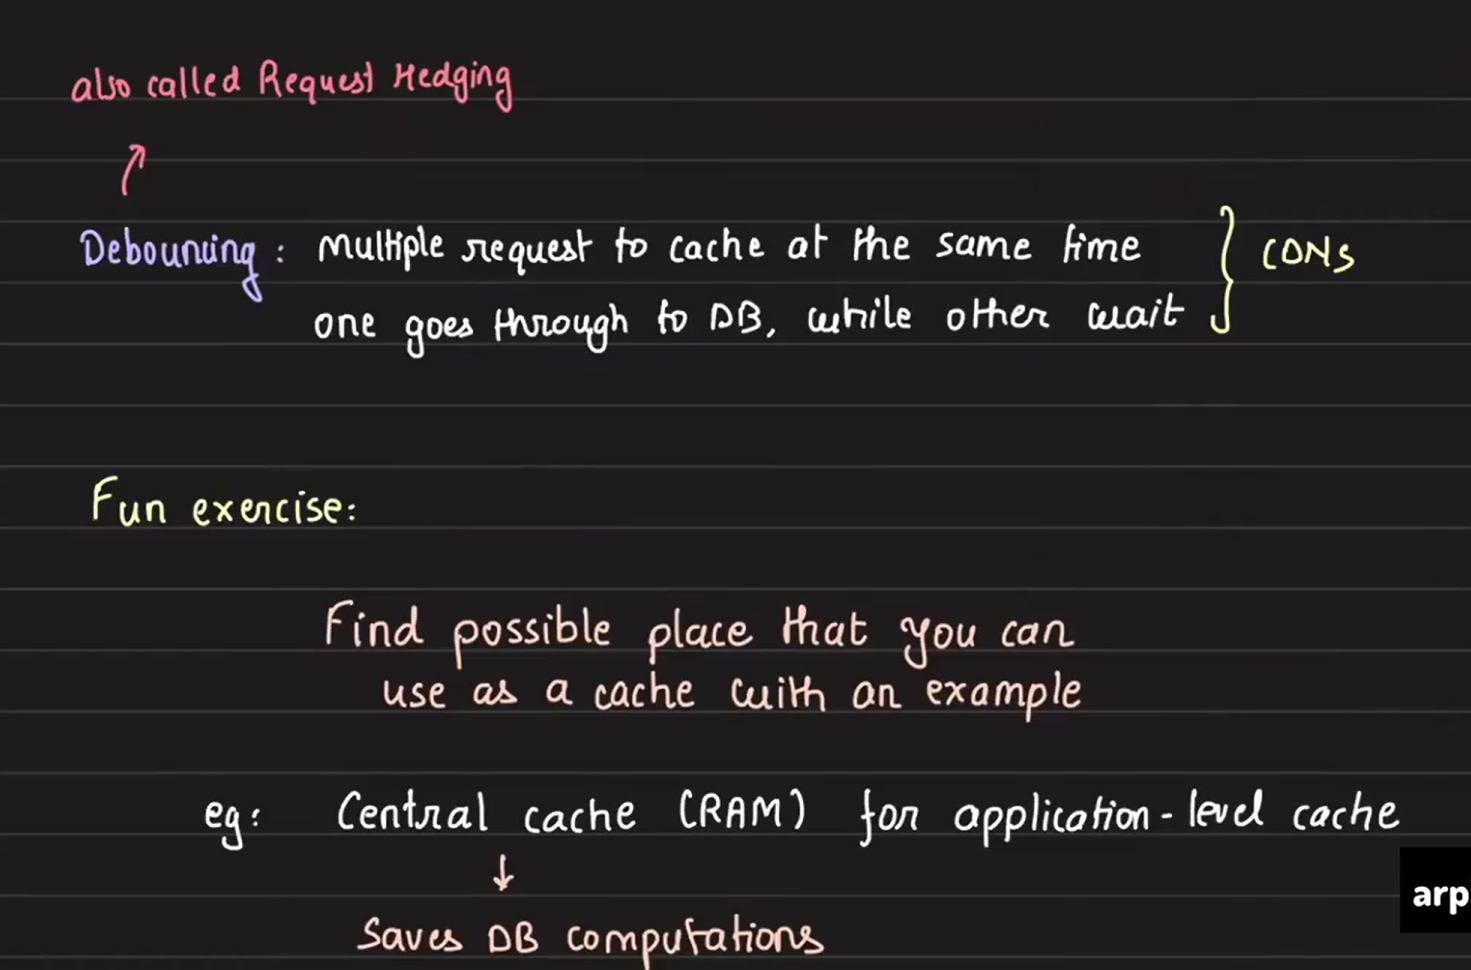 also called Request Hedging
Debouncing : Multiple request to cache at the same time
one goes through to DB, while other wait
CDNs
Fun exercise:
Find possible place that you can
use as a cache with an example
eg: Central cache (RAM) for application-level cache
Saves DB computations
arp